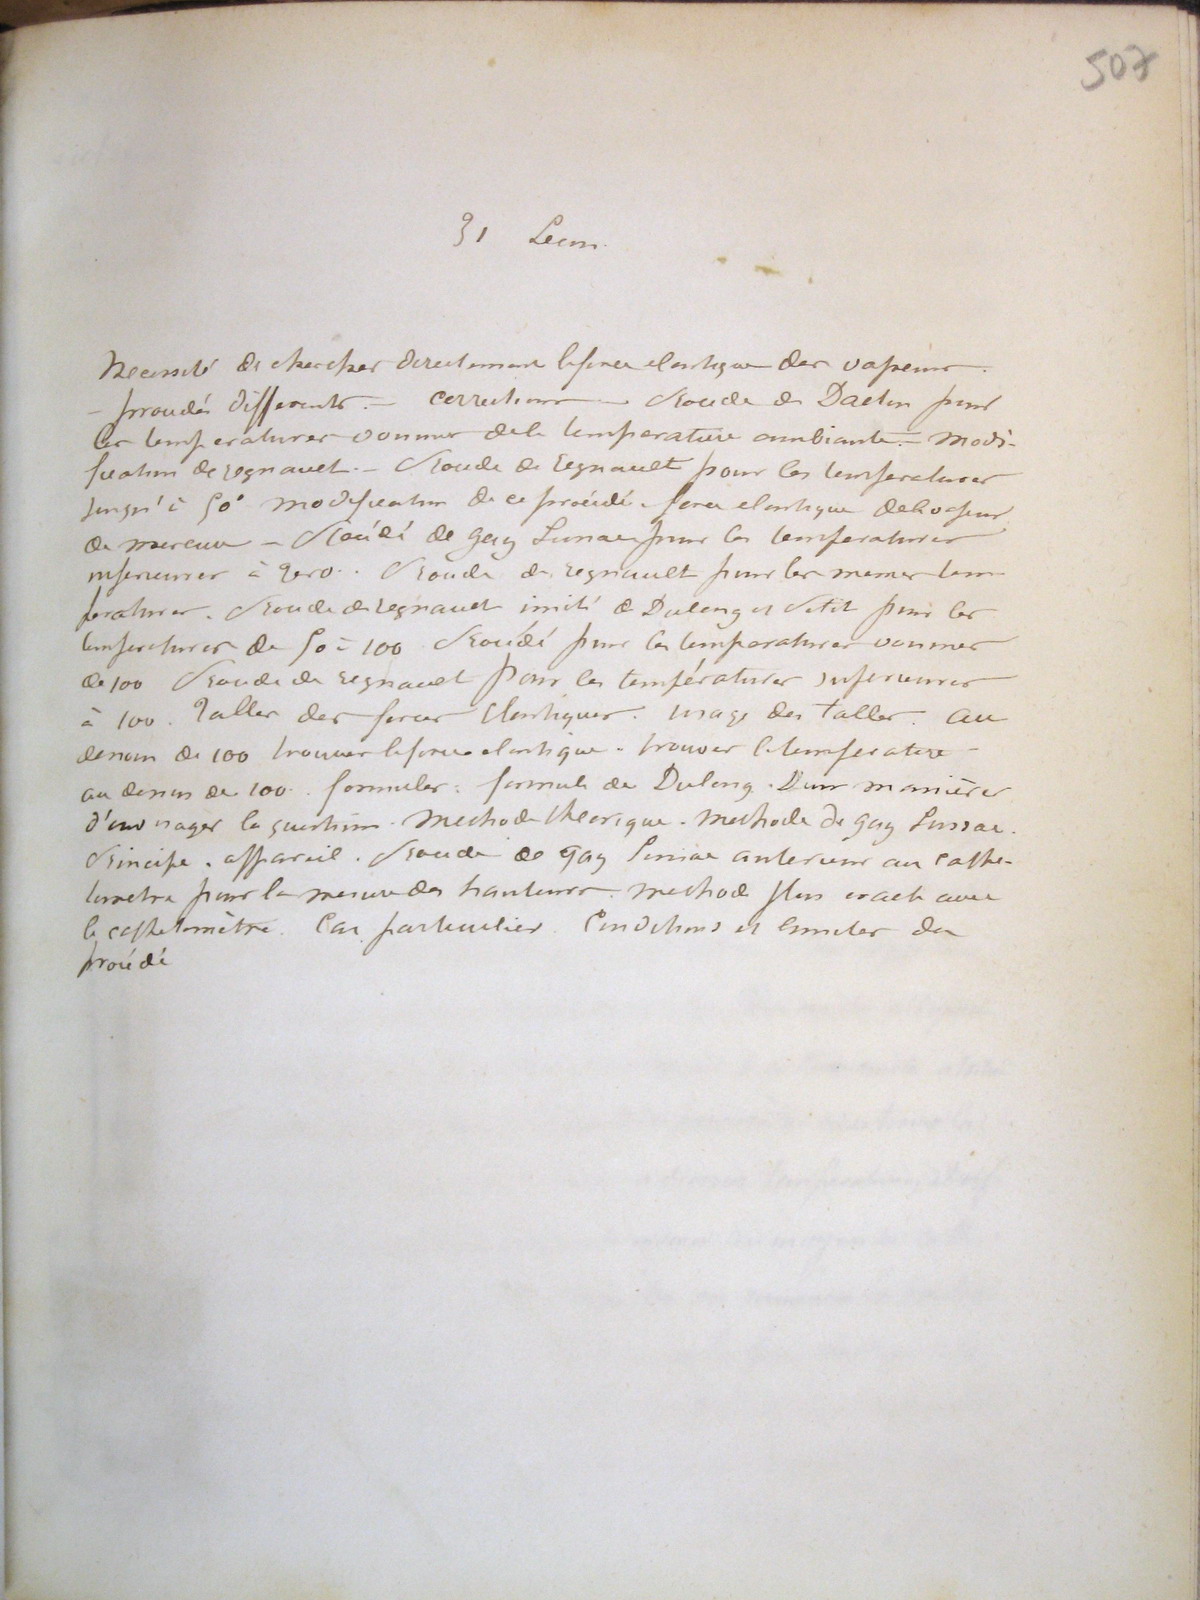 507
31 Leçon.
Necessité de chercher directement la force elastique des vapeurs.
— procédés différents. — corrections — Procédé de Dalton pour
les temperatures voisines de la temperature ambiante. — Modi-
fication de regnault. — Procédé de Regnault pour les temperatures
jusqu'à 50° modification de ce procédé. force elastique de la vapeur
de mercure — Procédé de Gay Lussac pour les temperatures
inferieures à zero. Procédé de regnault pour les memes tem
peratures. Procédé de regnault imité de Dulong et Petit pour les
temperatures de 50 à 100 Procédé pour les temperatures voisines
de 100 Procédé de regnault pour les températures superieures
à 100. Tables des forces élastiques. usage des tables. au
dessous de 100 trouver la force elastique. trouver la temperature —
au dessus de 100. formules. formule de Dulong. Deux manières
d'envisager la question. Methode théorique. Methode de gay Lussac.
Principe. appareil. Procédé de gay Lussac anterieur au cathe-
tometre pour la mesure des hauteurs. methode plus exacte avec
le cathetomètre. Cas particulier. Conditions et limites du
procédé